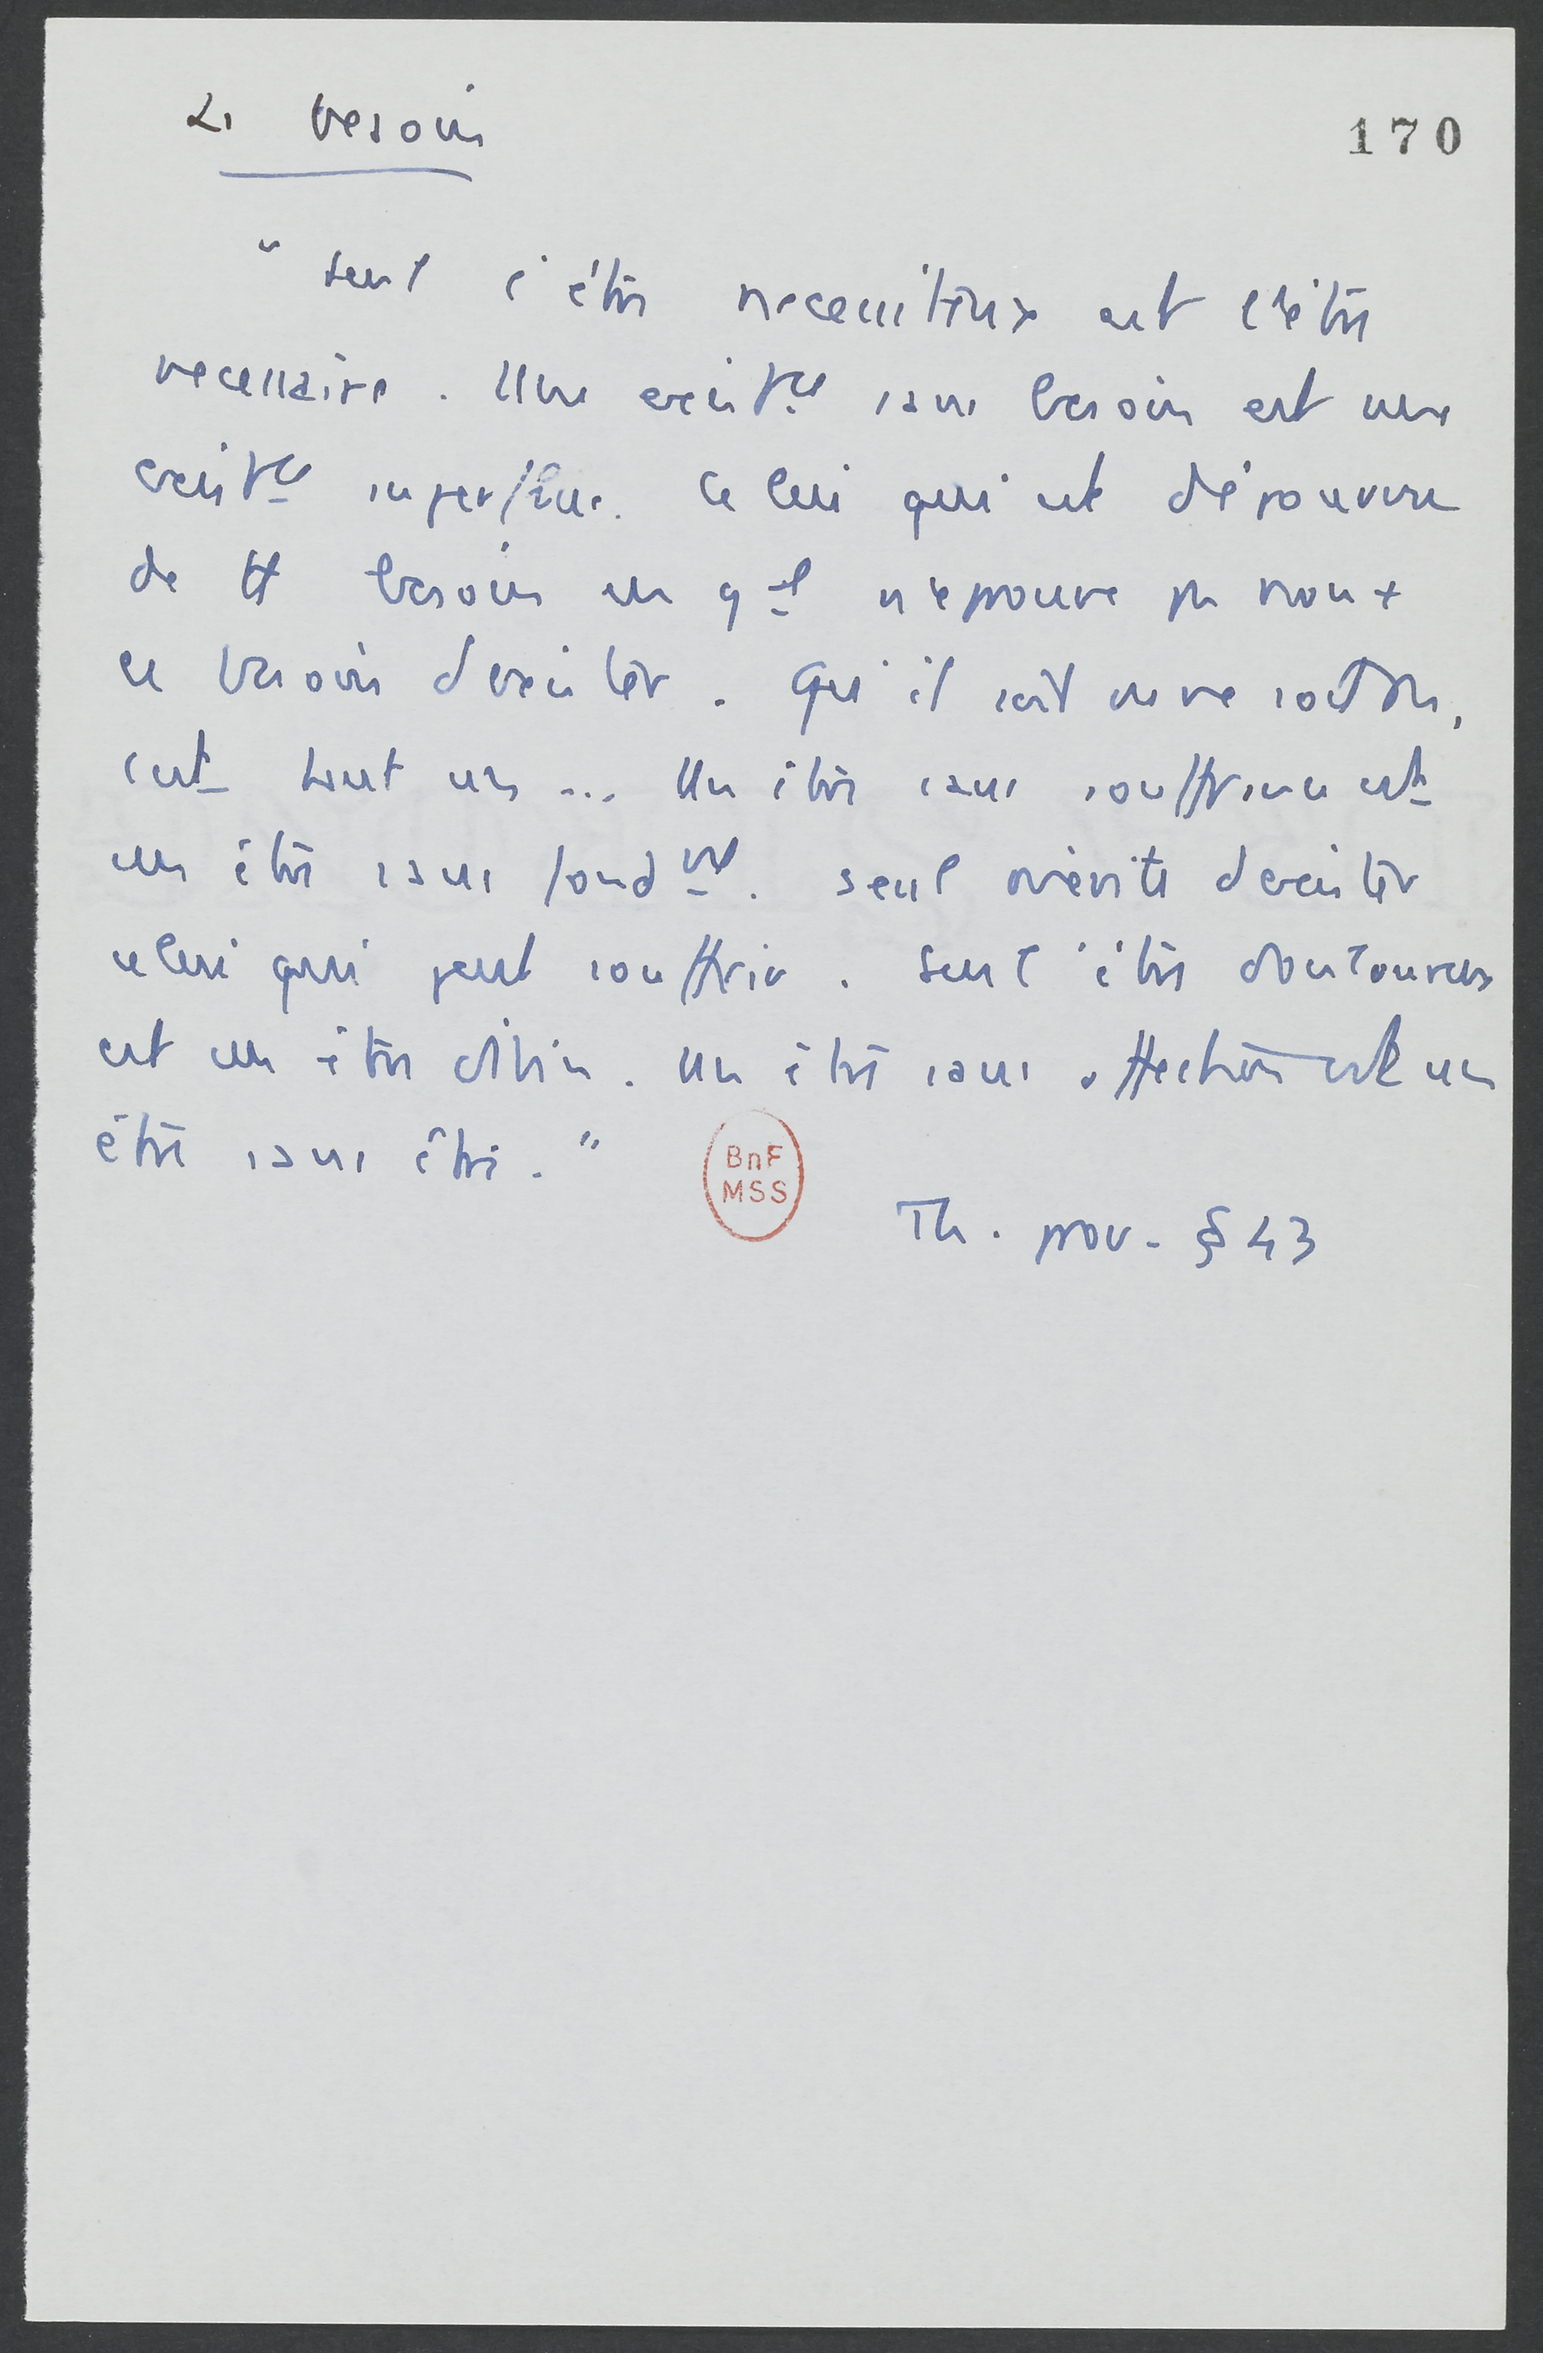 Le besoin
170
"Seul l'être necessiteux est l'être
necessaire. Une existce sans besoin est une
existce superflue. Celui qui est dépourvu
de tt besoin en gal n'éprouve pas non +
le besoin d'exister. Qu'il soit ou ne soit pas,
c'est tout un ... Un être sans souffrance est
un être sans fondmt. Seul mérite d'exister
celui qui peut souffrir. Seul l'être douloureux
est un être divin. Un être sans affection est un
être sans être."
BnF
MSS
Th. prov. § 43